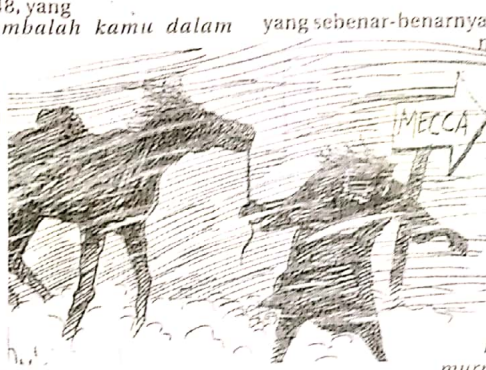 48, yang
mbalah kamu dalam
yang sebenar-benarnya
MECCA